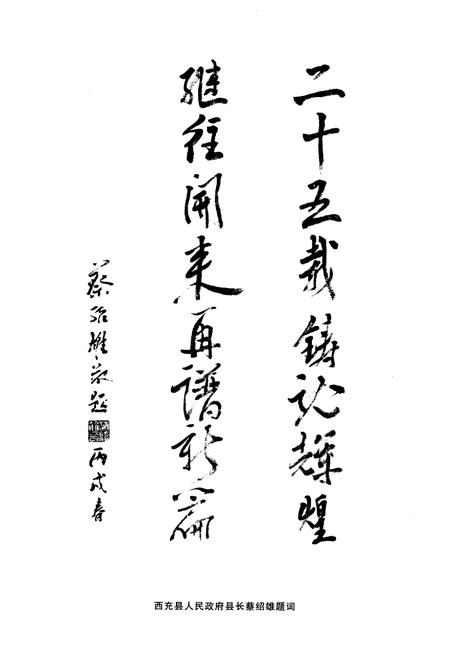 二十五载铸就辉煌
继往開来再谱新篇
蔡绍雄敬题
丙戌春
西充县人民政府县长蔡绍雄题词